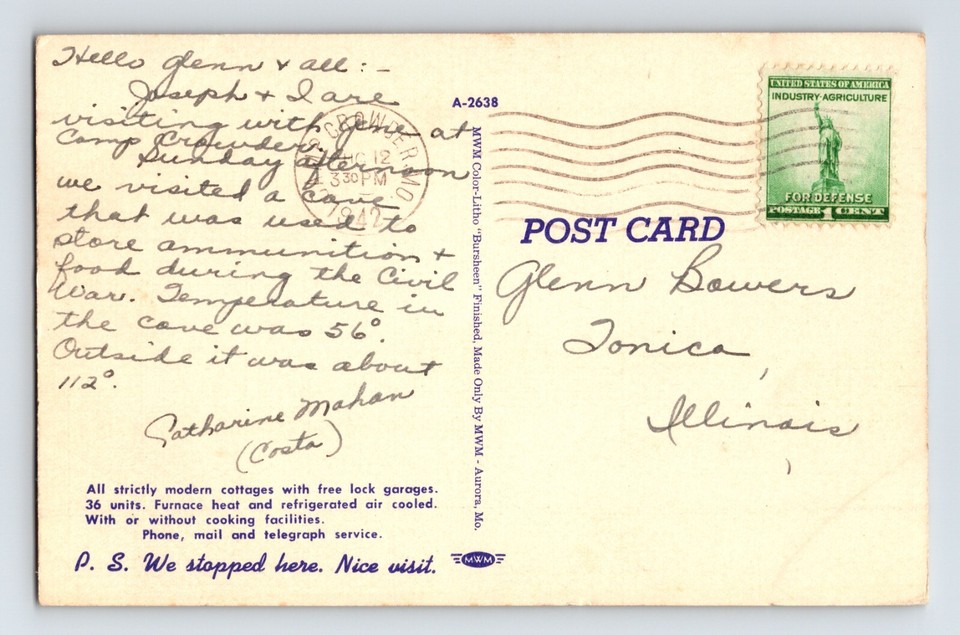 Hello Glenn & all:-
Joseph & I are
visiting with Gene at
Camp Crowder.
Sunday afternoon
we visited a cave
that was used to
store ammunition &
food during the Civil
War. Temperature in
the cave was 56°.
Outside it was about
112°.
Catharine Mahan
(Costa)
All strictly modern cottages with free lock garages.
36 units. Furnace heat and refrigerated air cooled.
With or without cooking facilities.
Phone, mail and telegraph service.
P. S. We stopped here. Nice visit.
A-2638
MWM Color-Litho "Bursheen" Finished, Made Only By MWM - Aurora, Mo.
MWM
CROWDER, MO.
12
3 30 PM
1942
UNITED STATES OF AMERICA
INDUSTRY-AGRICULTURE
FOR DEFENSE
POSTAGE 1 CENT
POST CARD
Glenn Bowers
Tonica,
Illinois,